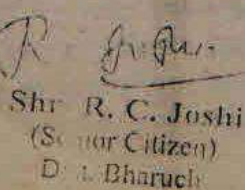 Shr R. C. Joshi
(S nior Citizen)
D t. Bharuch